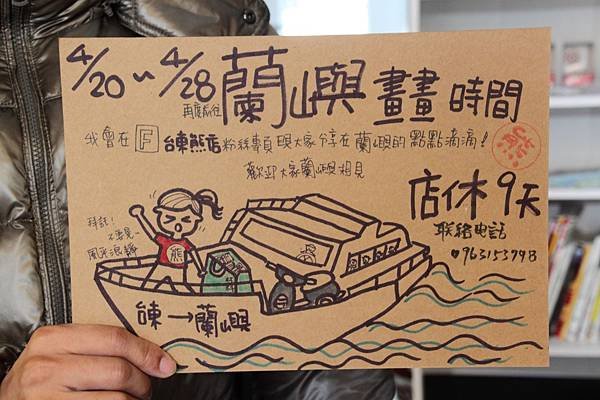 4/20~4/28 再度前往 蘭嶼畫畫時間
我會在 F 台東熊店粉絲專頁跟大家分享在蘭嶼的點點滴滴!
歡迎大家蘭嶼相見
熊
店休9天
聯絡電話
0963153748
拜託!
不要晃~
風平浪靜
熊
台東→蘭嶼